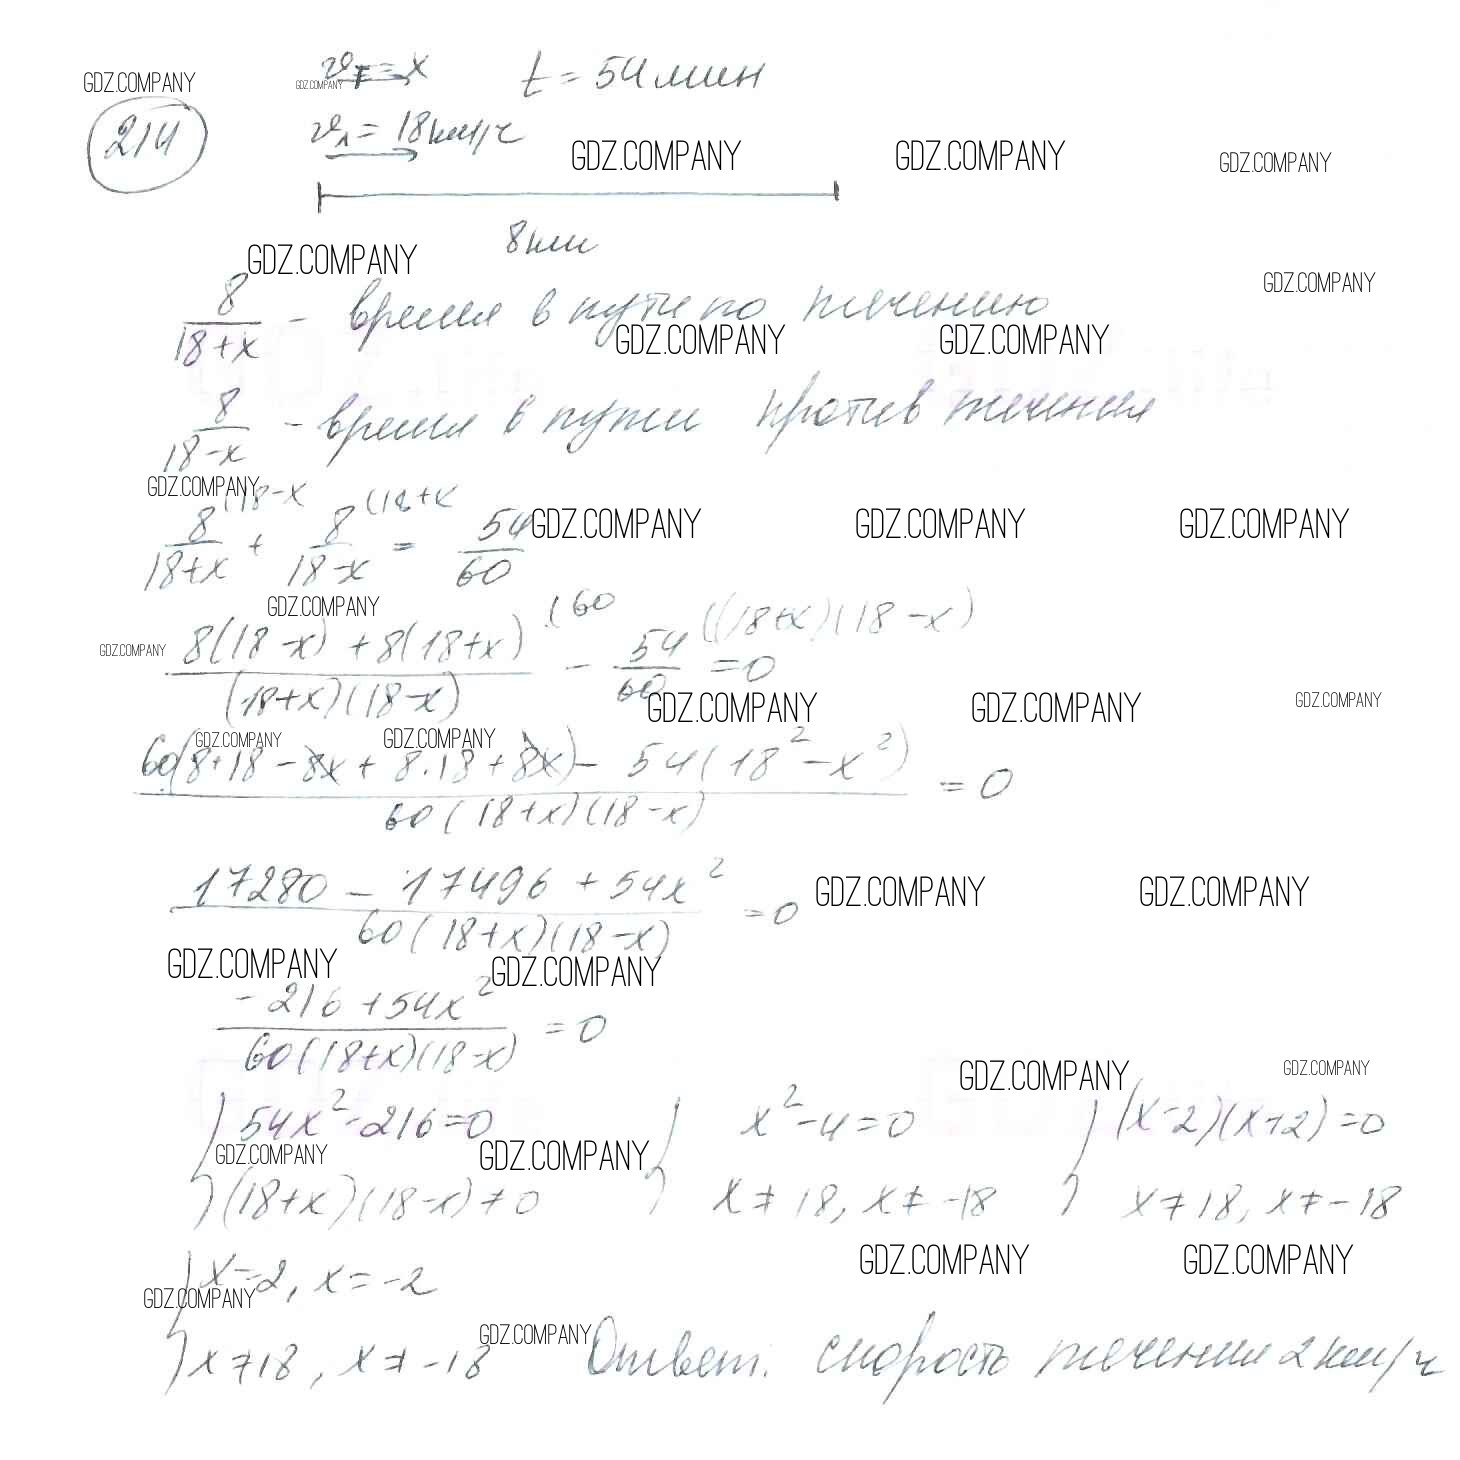 GDZ.COMPANY
214
GDZ.COMPANY
υт = x t = 54 мин
υ₁ = 18 км/ч
GDZ.COMPANY GDZ.COMPANY GDZ.COMPANY
8 км
GDZ.COMPANY
GDZ.COMPANY
8/(18+x) – время в пути по течению
GDZ.COMPANY GDZ.COMPANY
8/(18-x) – время в пути против течения
GDZ.COMPANY
8/(18+x) (18-x + 8/(18-x) (18+x = 54/60
GDZ.COMPANY GDZ.COMPANY GDZ.COMPANY
GDZ.COMPANY
GDZ.COMPANY
(8(18-x) + 8(18+x))/((18+x)(18-x)) (60 – 54/60 ((18+x)(18-x) = 0
GDZ.COMPANY GDZ.COMPANY GDZ.COMPANY
GDZ.COMPANY GDZ.COMPANY
(60(8·18 - 8x + 8·18 + 8x) - 54(18² - x²))/(60(18+x)(18-x)) = 0
(17280 - 17496 + 54x²)/(60(18+x)(18-x)) = 0
GDZ.COMPANY GDZ.COMPANY
GDZ.COMPANY GDZ.COMPANY
(-216 + 54x²)/(60(18+x)(18-x)) = 0
GDZ.COMPANY GDZ.COMPANY
54x² - 216 = 0 x² - 4 = 0 (x-2)(x+2) = 0
GDZ.COMPANY GDZ.COMPANY
(18+x)(18-x) ≠ 0 x ≠ 18, x ≠ -18 x ≠ 18, x ≠ -18
GDZ.COMPANY GDZ.COMPANY
x = 2, x = -2
GDZ.COMPANY
GDZ.COMPANY
x ≠ 18, x ≠ -18 Ответ: скорость течения 2 км/ч